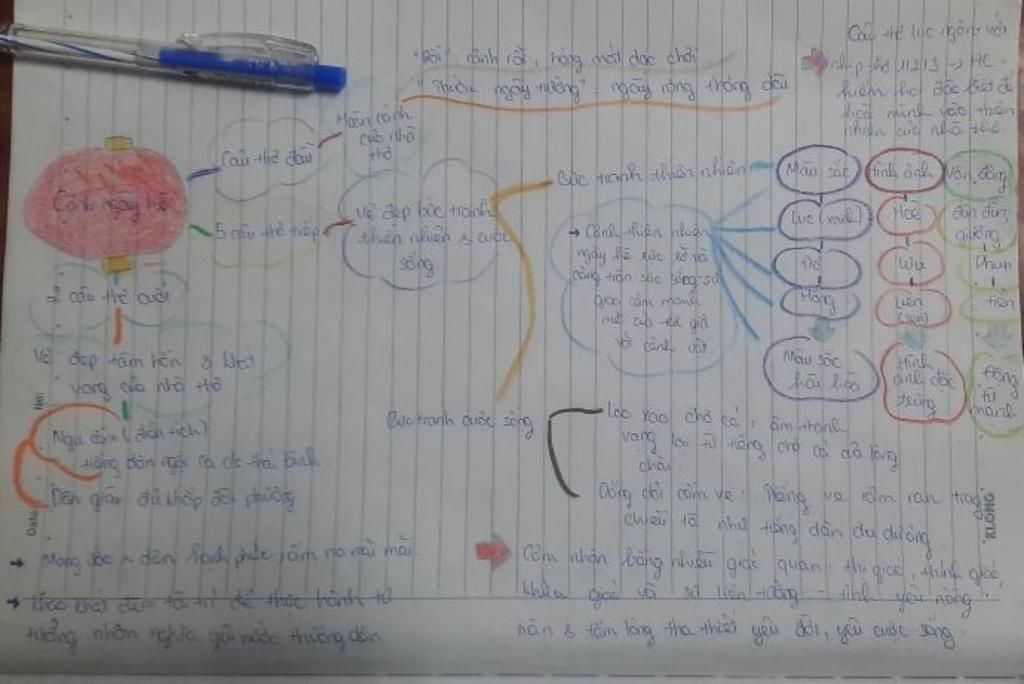 Cảnh ngày hè
Câu thơ đầu
Hoàn cảnh
của nhà
thơ
"Rồi": rảnh rỗi, hóng mát dạo chơi
"Thuở ngày trường": ngày rộng tháng dài
Câu thơ lục ngôn với
nhịp thơ 1/2/3 → HC.
hiếm hoi đặc biệt để
hoà mình vào thiên
nhiên của nhà thơ.
5 câu thơ tiếp
Vẻ đẹp bức tranh
thiên nhiên & cuộc
sống
Bức tranh thiên nhiên
→ Cảnh thiên nhiên
ngày hè rực rỡ và
căng tràn sức sống sự
giao cảm mạnh
mẽ của tác giả
và cảnh vật.
Màu sắc
Lục (xanh)
Đỏ
Hồng
Màu sắc
hài hoà
Hình ảnh
Hoè
Lựu
Liên
(sen)
Hình
ảnh đặc
trưng
Vận động
đùn đùn,
giương
Phun
tiễn
Động
từ
mạnh
Bức tranh cuộc sống
Lao xao chợ cá: âm thanh
vọng lại từ tiếng chợ cá từ làng
chài
Dắng dỏi cầm ve: Tiếng ve râm ran trong
chiều tà như tiếng đàn du dương
2 câu thơ cuối
Vẻ đẹp tâm hồn & khát
vọng của nhà thơ
Ngu cầm (điển tích)
tiếng đàn ngợi ca c/s thái bình.
Dân giàu đủ khắp đòi phương
→ Mong ước n.dân hạnh phúc, ấm no mãi mãi.
→ Khao khát đem tài trí để thực hành tư
tưởng nhân nghĩa yêu nước thương dân
Cảm nhận bằng nhiều giác quan: thị giác, thính giác,
khứu giác và sự liên tưởng → tình yêu nồng
nàn & tấm lòng tha thiết yêu đời, yêu cuộc sống.
No:
Date:
KLONG